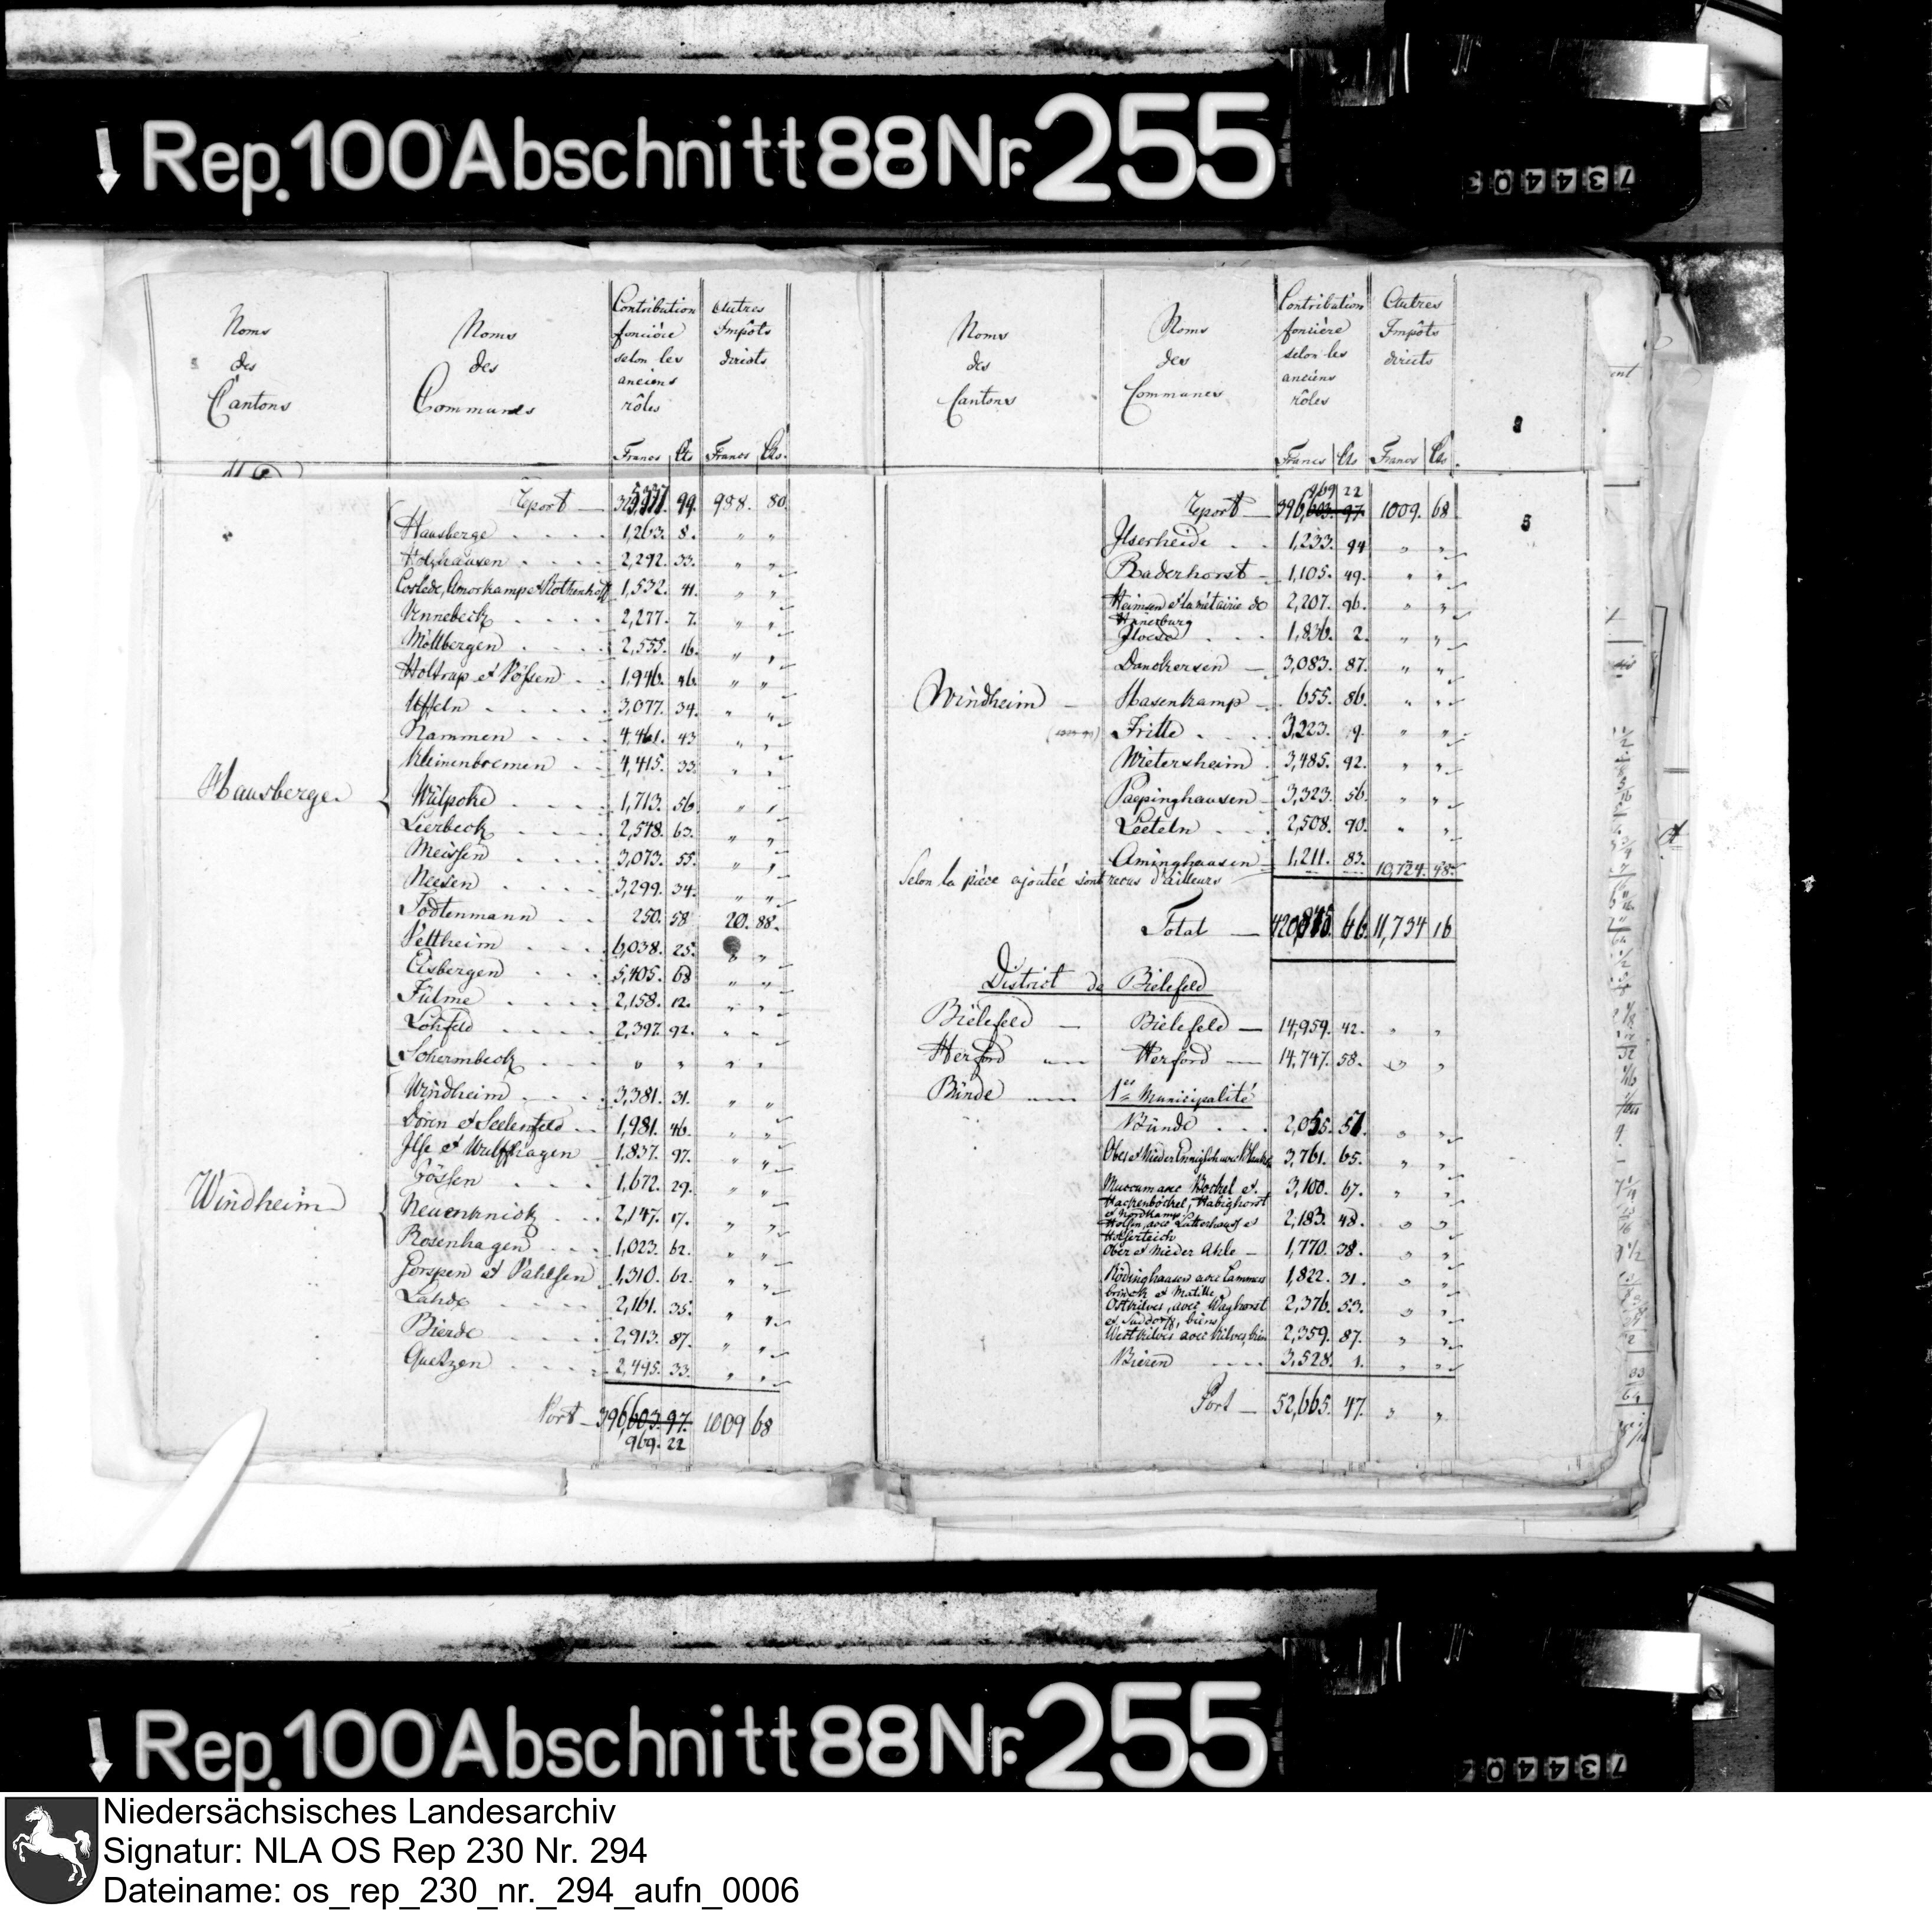 Rep. 100 Abschnitt 88 Nr. 255
734403
Noms des Cantons | Noms des Communes | Contribution foncière selon les anciens rôles | Autres Impôts directs
Francs | Cts | Francs | Cts.
Report — 99. 988. 80.
Hausberge
Hausberge . . . . 1,263. 8. " "
Holzhausen . . . . 2,292. 33. " "
1,532. 41. " "
Vennebeck . . . . 2,277. 7. " "
Möllbergen . . . . 2,555. 16. " "
Holtrup et Vößen . . 1,946. 46. " "
Uffeln . . . . . 3,077. 34. " "
Nammen . . . . 4,461. 43 " "
Kleinenbremen . . 4,415. 33. " "
Wülpcke . . . . 1,713. 56 " "
Leerbeck . . . . 2,548. 63. " "
Meissen . . . . 3,073. 55. " "
Neesen . . . . 3,299. 34. " "
Todtenmann . . 250. 58 20. 88.
Veltheim . . . . 6,038. 25. " "
Eisbergen . . . 5,405. 68 " "
Fülme . . . . 2,158. 12. " "
Lohfeld . . . . 2,397. 92. " "
Schermbeck . . . " " " "
Windheim
Windheim . . . . 3,381. 31. " "
Döhren et Seelenfeld . . 1,981. 46. " "
Ilse et Wulfhagen 1,837. 97. " "
Grössen . . . . 1,672. 29. " "
Neuenknick . . . 2,147. 17. " "
Rosenhagen . . . 1,023. 62. " "
Gorspen et Vahlsen 1,310. 62. " "
Lahde . . . . 2,161. 35. " "
Bierde . . . . 2,913. 87. " "
Quetzen . . . . 2,495. 33. " "
Port — 396,603. 97. 1009 68
969. 22
Noms des Cantons | Noms des Communes | Contribution foncière selon les anciens rôles | Autres Impôts directs
Francs | Cts | Francs | Cts.
969 22
Report — 396,603. 97. 1009. 68
Windheim —
Ilserheide . . 1,233. 94 " "
Raderhorst — 1,105. 49. " "
Heimsen et la métairie de 2,207. 96. " "
1,836. 2. " "
Danckersen — 3,083. 87. " "
Hasenkamp — 655. 86. " "
Frille . . . . 3,223. 19. " "
Wietersheim . 3,485. 92. " "
Paepinghausen — 3,323. 56. " "
Leeteln . . . 2,508. 90. " "
Aminghausen 1,211. 83.
Selon la pièce ajoutée sont recus d'ailleurs 10,724. 48.
Total — 66. 11,734 16
District de Bielefeld
Bielefeld — Bielefeld — 14,959. 42. " "
Herford — Herford — 14,747. 58. " "
Bünde — 1re Municipalité
Bünde . . . 2,055. 51. " "
3,761. 65. " "
3,100. 67. " "
2,183. 48. " "
Ober et Nieder Ahle — 1,770. 38. " "
1,822. 31. " "
2,376. 53. " "
2,359. 87. " "
Bieren . . . . 3,528. 1. " "
Port — 52,665. 47. " "
Rep. 100 Abschnitt 88 Nr. 255
Niedersächsisches Landesarchiv
Signatur: NLA OS Rep 230 Nr. 294
Dateiname: os_rep_230_nr._294_aufn_0006